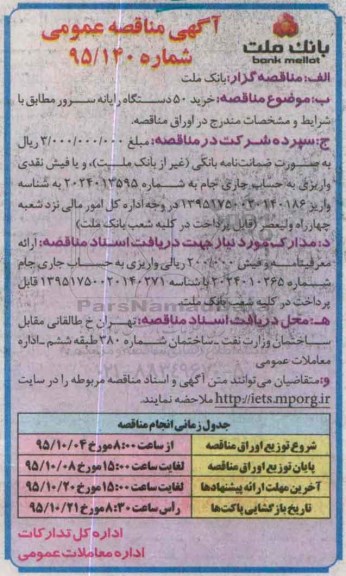 آگهی مناقصه عمومی
شماره ۹۵/۱۴۰
بانک ملت
bank mellat
الف: مناقصه گزار: بانک ملت
ب: موضوع مناقصه: خرید ۵۰ دستگاه رایانه سرور مطابق با
شرایط و مشخصات مندرج در اوراق مناقصه.
ج: سپرده شرکت در مناقصه: مبلغ ۳/۰۰۰/۰۰۰/۰۰۰ ریال
به صورت ضمانت‌نامه بانکی (غیر از بانک ملت)، و یا فیش نقدی
واریزی به حساب جاری جام به شماره ۲۰۳۴۰۱۳۵۹۵ به شناسه
واریز ۱۳۹۵۱۷۵۰۰۳۰۱۴۰۱۸۶ در وجه اداره کل امور مالی نزد شعبه
چهارراه ولیعصر (قابل پرداخت در کلیه شعب بانک ملت)
د: مدارک مورد نیاز جهت دریافت اسناد مناقصه: ارائه
معرفینامه و فیش ۲۰۰/۰۰۰ ریالی واریزی به حساب جاری جام
شماره ۲۰۲۴۰۱۰۳۶۵ با شناسه ۱۳۹۵۱۷۵۰۰۲۰۱۴۰۲۷۱ قابل
پرداخت در کلیه شعب بانک ملت
هـ: محل دریافت اسناد مناقصه: تهران خ طالقانی مقابل
ساختمان وزارت نفت ـ ساختمان شماره ۳۸۰ طبقه ششم ـ اداره
معاملات عمومی
و: متقاضیان می‌توانند متن آگهی و اسناد مناقصه مربوطه را در سایت
http://iets.mporg.ir ملاحضه نمایند.
جدول زمانی انجام مناقصه
شروع توزیع اوراق مناقصه از ساعت ۸:۰۰ مورخ ۹۵/۱۰/۰۴
پایان توزیع اوراق مناقصه لغایت ساعت ۱۵:۰۰ مورخ ۹۵/۱۰/۰۸
آخرین مهلت ارائه پیشنهادها لغایت ساعت ۱۵:۰۰ مورخ ۹۵/۱۰/۲۰
تاریخ بازگشایی پاکت‌ها رأس ساعت ۸:۳۰ مورخ ۹۵/۱۰/۲۱
اداره کل تدارکات
اداره معاملات عمومی